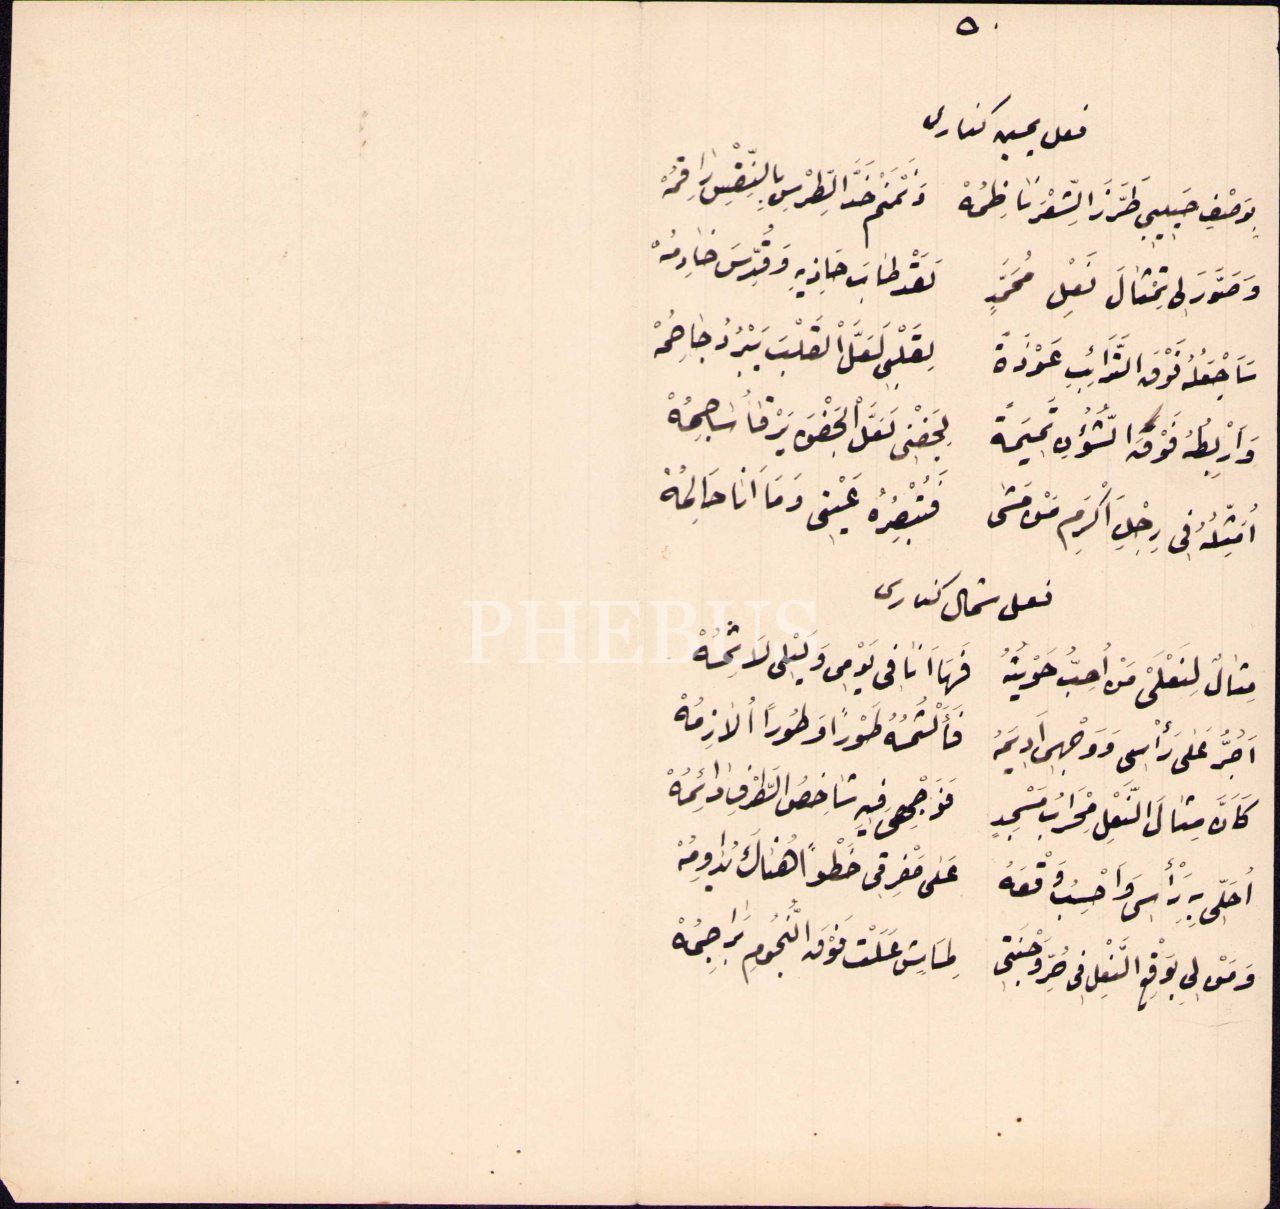 ٥٠
نعل يمين كنارى
بِوَصْفِ حَبِيبِي طَرَّزَ الشِّعْرَ نَاظِمُهْ وَنَمْنَمَ خَدَّ الطِّرْسِ بِالنِّقْسِ رَاقِمُهْ
وَصَوَّرَ لِى تِمْثَالَ نَعْلِ مُحَمَّدٍ لَقَدْ طَابَ حَاذِيهِ وَقُدِّسَ خَادِمُهْ
سَأَجْعَلُهُ فَوْقَ التَّرَائِبِ عَوْذَةً لِقَلْبِى لَعَلَّ الْقَلْبَ يَبْرُدُ جَاحِمُهْ
وَأَرْبِطُهُ فَوْقَ الشُّؤُنِ تَمِيمَةً لِجَفْنِى لَعَلَّ الْجَفْنَ يَرْقَأُ سَاجِمُهْ
أُمَثِّلُهُ فِى رِجْلِ أَكْرَمِ مَنْ مَشَى فَتُبْصِرُهُ عَيْنِى وَمَا أَنَا حَالِمُهْ
نعل شمال كنارى
مِثَالٌ لِنَعْلَىْ مَنْ أُحِبُّ حَوَيْتُهُ فَهَا أَنَا فِى يَوْمِى وَلَيْلِى لَاثِمُهْ
أَجُرُّ عَلَى رَأْسِى وَوَجْهِى أَدِيمَهُ فَأَلْثُمُهُ طَوْرًا وَطَوْرًا أُلَازِمُهْ
كَأَنَّ مِثَالَ النَّعْلِ مِحْرَابُ مَسْجِدٍ فَوَجْهِى فِيهِ شَاخِصُ الطَّرْفِ دَائِمُهْ
أُحَلِّى بِهِ رَأْسِى وَأَحْسِبُ وَقْعَهُ عَلَى مَفْرِقِى خَطْوًا هُنَاكَ يُدَاوِمُهْ
وَمَنْ لِى بِوَقْعِ النَّعْلِ فِى حُرِّ وَجْنَتِى لِمَاشٍ عَلَتْ فَوْقَ النُّجُومِ بَرَاجِمُهْ
PHEBUS